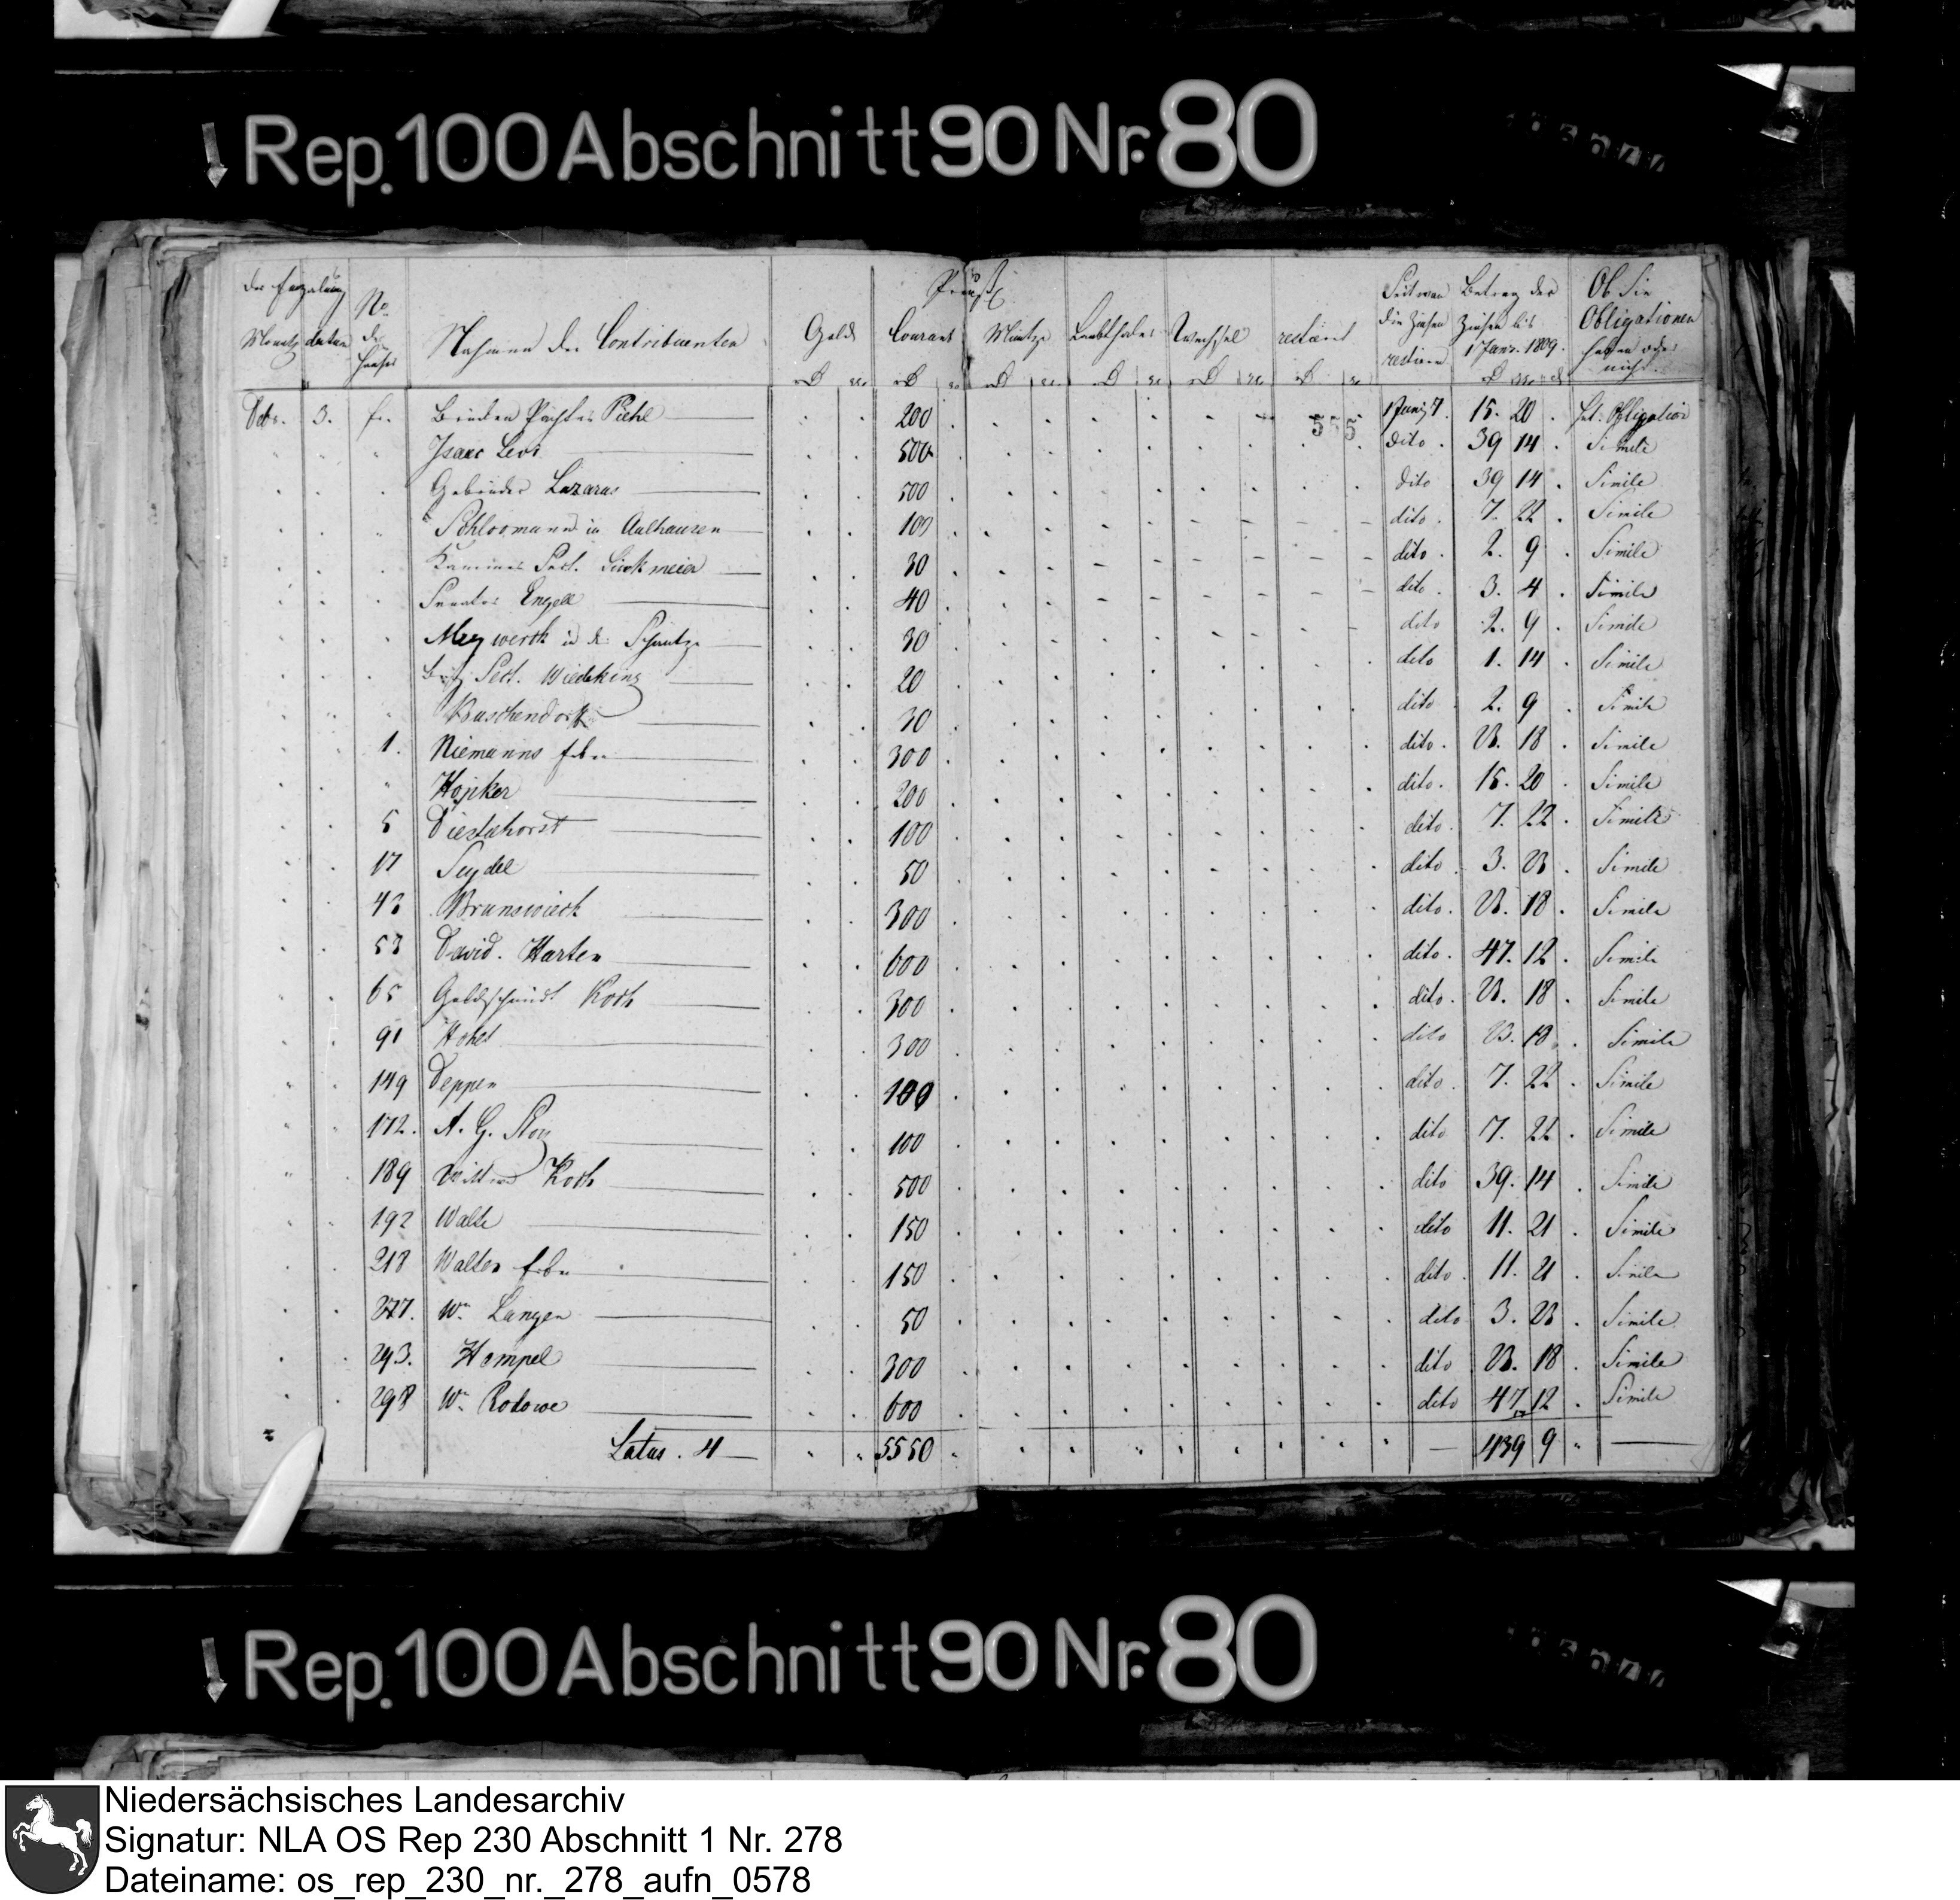 Rep. 100 Abschnitt 90 Nr. 80
No.
Nahmen der Contribuenten
Gold Courant Müntze Laubthaler Wechsel restant
Seit wan die Zinsen restiren
Betrag der Zinsen bis 1 Janr. 1809.
Ob Sie Obligationen haben oder nicht.
555
3. Piehl 200 1 Juny 7. 15. 20 Obligation
Isaac Levi 500 dito 39 14 Simile
Gebrüder Lazarus 500 dito 39 14 Simile
Schloomann in Aulhausen 100 dito 7. 22 Simile
30 dito 2. 9 Simile
Senator Engell 40 dito 3. 4 Simile
Meywerth in der 30 dito 2. 9 Simile
Sect. Wiedeking 20 dito 1. 14 Simile
Buschendorf 30 dito 2. 9 Simile
1. Niemanns Erben 300 dito 23. 18 Simile
Höpker 200 dito 15. 20 Simile
5 Diestelhorst 100 dito 7. 22 Simile
17 Seydel 50 dito 3. 23 Simile
43 Brunswieck 300 dito 23. 18 Simile
53 David. Harten 600 dito 47. 12 Simile
65 Goldschmidt Koch 300 dito 23. 18 Simile
91 300 dito 23. 18 Simile
149 Deppen 100 dito 7. 22 Simile
172. A. G. 100 dito 7. 22 Simile
189 Wittwe Koch 500 dito 39. 14 Simile
192 Walte 150 dito 11. 21 Simile
218 Walter Erben 150 dito 11. 21 Simile
277. Wn Langen 50 dito 3. 23 Simile
293. Hempel 300 dito 23. 18 Simile
298 Wn Rodowe 600 dito 47 12 Simile
Latus. 4 5550 439 9
Rep. 100 Abschnitt 90 Nr. 80
Niedersächsisches Landesarchiv
Signatur: NLA OS Rep 230 Abschnitt 1 Nr. 278
Dateiname: os_rep_230_nr._278_aufn_0578